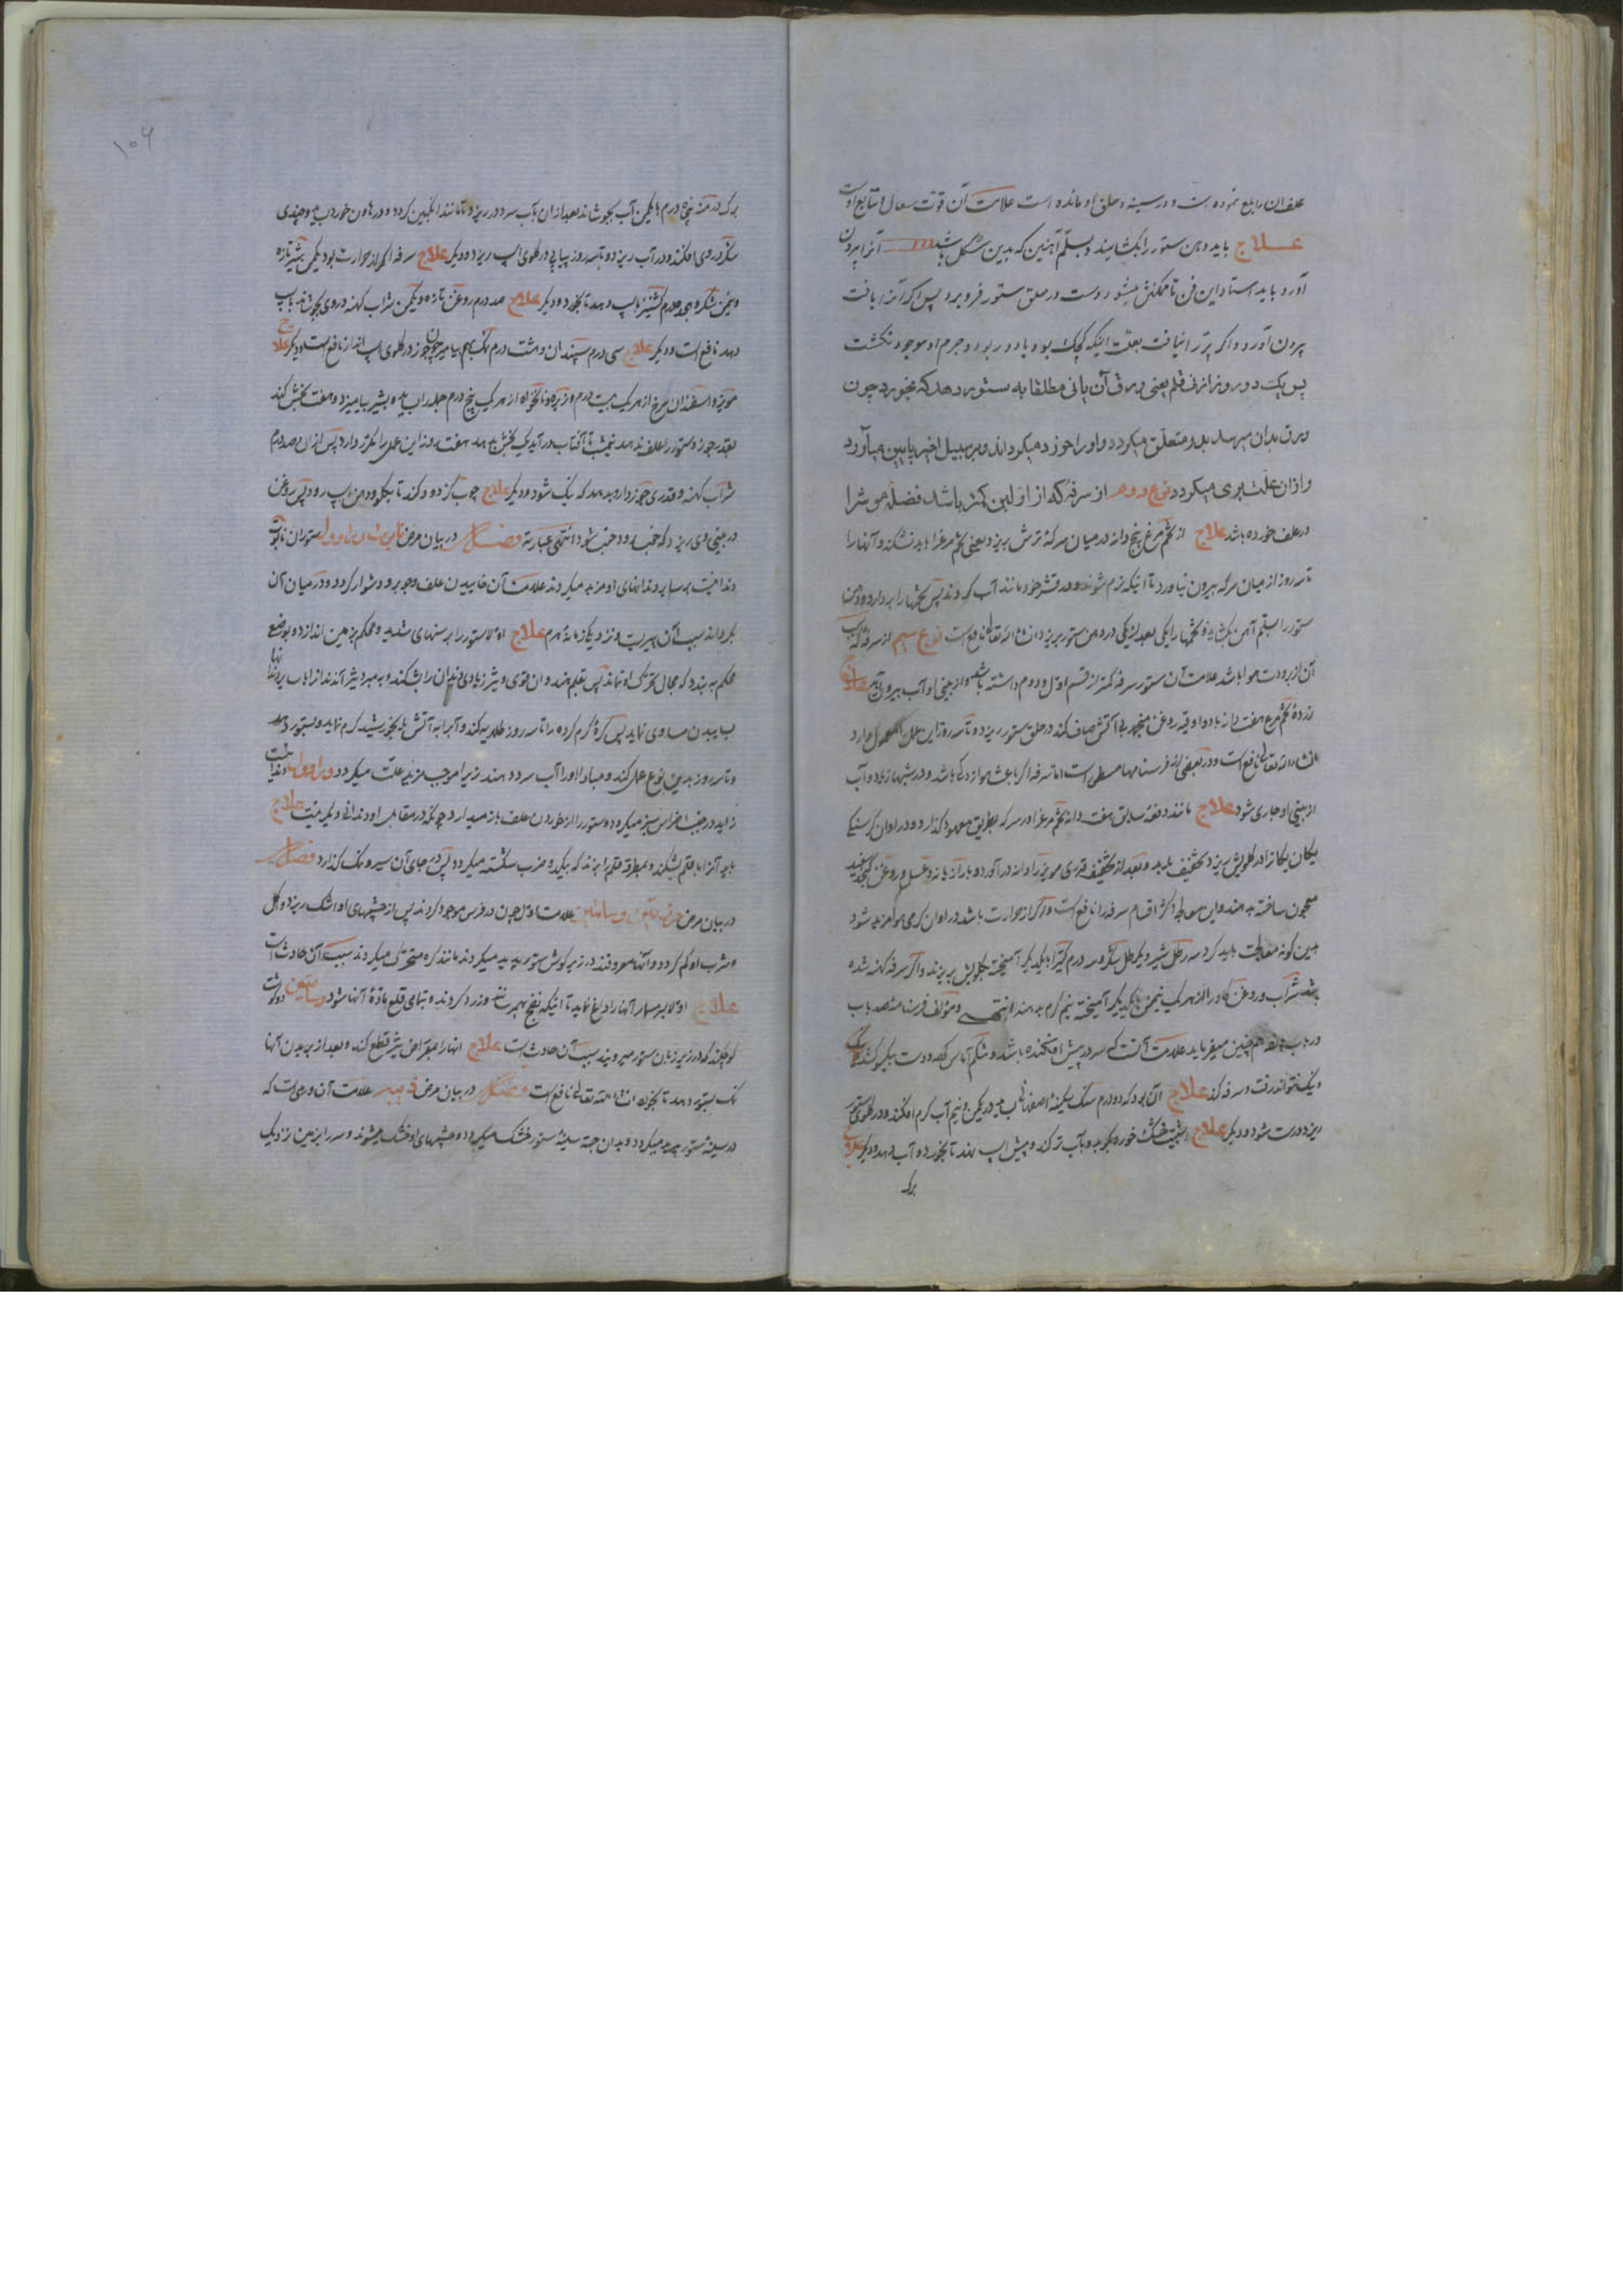 علف ان را بلع نموده است و در سینه و حلق او مانده است علامت آن قوت سعال و تتابع اوست
علاج باید دهن ستور را بکشایند و بسلّم آهنین که بدین شکل باشد آنرا بیرون
آورد باید استاد این فن تا ممکنش میشود دست در حلق ستور فرو برد پس اگر آنرا یافت
بیرون آورد و اگر پر را نیافت بعلت اینکه کوچک بود یا دور بود و جرم او موجود نکشت
پس یک دو روز از نی قلم یعنی ورق آن یا نی مطلقا به ستور دهد که بخورد چون
ورق بدان میرسد بدو متعلق میکردد و او را خورد میکرداند و بر سبیل اخیر پایین میآورد
و ازان علت بری میکردد نوع دوم از سرفه که از اولین کمتر باشد فضلهٔ موش را
در علف خورده باشد علاج از تخم مرغ پنج دانه در میان سرکهٔ ترش بریزد یعنی تخم مرغها باید نشکند و آنها را
تا سه روز از میان سرکه بیرون نیاورد تا اینکه نرم شوند و در قشر خود مانند آب کردند پس تخمها را بردارد و دهن
ستور را بسلّم آهن بکشاید و تخمها را یکی بعد از یکی در دهن ستور بریزد ان شاء الله تعالی نافع است نوع سیم از سرفه که سبب
آن از برودت هوا باشد علامت آن ستور سرفه کمتر از قسم اول و دوم داشته باشد و از بینی او آب بیرون آید علاج
از زردهٔ تخم مرغ هفت دانه با دو اوقیه روغن صاف کند در حلق ستور ریزد و تا سه روز این عمل معمول دارد
ان شاء الله تعالی نافع است و در بعضی از فرسنامها مسطور است اما سرفه اگر باعث هوازدگی باشد و در شبها زیاد و آب
از بینی او جاری شود علاج مانند دفعهٔ سابق هفت دانه تخم مرغ را در سرکه بطریق معهود کذارد و در اوان گرسنگی
یکان یکان را در گلویش بریزد تخفیف یابد و بعد از تخفیف قدری مویز را دانه در آورد و با رازیانه و عسل و روغن کنجد سفید
معجون ساخته بدهند و این معالجه اکثر اقسام سرفه را نافع است و اگر از حرارت باشد در اوان گرمی هوا مزید شود
بدین کونه معالجت باید کرد سه رطل شیر و یک رطل شکر و سه درم کتیرا با یکدیگر آمیخته بگلویش بریزند و اگر سرفه کهنه شده
باشد شراب و روغن کاو را از هر یک نیم من با یکدیگر آمیخته نیم گرم بدهند انتهی و مؤلف فرسنامهٔ صد باب
در باب پنجاه هم چنین میفرماید علامت آنست که سر در پیش افکنده باشد و شکم آماس کند و دست بیکسو کشد و
و نیک نتواند رفت و سرفه کند علاج آن بود که دو درم سنگ سکینهٔ اصفهانی در یک من و نیم آب گرم افکند و در گلوی ستور
ریزد درست شود و دیگر علاج شبت خشک خورد بکوبد و بآب تر کند و پیش اسب نهد تا بخورد و آب دهد و دیگر علاج
برک
۱۰۶
برک درمنه پنج درم با یکمن آب بجوشاند بعد ازان بآب سرد در ریزد تا مانند انکبین کردد و در هاون خورد و چندی
شکر در وی افکند و در آب ریزد و تا سه روز پیاپی در گلوی اسپ ریزد و دیگر علاج سرفه اگر از حرارت بود یکمن شیر تازه
و نیم من شکر و پنج درم کشنیز باسپ دهد تا بخورد و دیگر علاج صد درم روغن تازه و یکمن شراب کهنه در وی بجوشاند باسپ
دهد نافع است و دیگر علاج سی درم سپندان و هشت درم نمک بهم بیامیزد چون جوز در گلوی اسپ انداز نافع است و دیگر علاج
مویز و اسفندان سرخ از هر یک بیست درم و زیره و نانخواه از هر یک پنج درم جمله را بساید بشیر بیامیزد و هفت بخش کند
بقدر جوز و ستور را علف ندهد تیمیشب تا آفتاب در آید یک بخش بدهد هفت روز این عمل را مکرر دارد پس ازان صد درم
شراب کهنه و قدری بدهد که نیک شود و دیگر علاج چوب گز دود کند تا بگلو و دهن اسپ رود پس روغن
در بینی وی ریزد که خوب شود انتهی عبارته فصل در بیان مرض ستوران
دندانیست بر سایر دندانهای او مزید میکردند علامت آن خاییدن علف و جو برو دشوار کردد و در میان آن
بکرداند سبب آن پیریست و نزدیک زمانهٔ هرم علاج اولا ستور را برسنهای شدید و محکم بزمین اندازد و بوضع
محکم به بندد که مجال تحرک او نماند پس بقلم هند وان قوی و تیز زیادی دندان را بشکند و به مبرد تیز آنند از اباب
بساییدن مساوی نماید پس کرهٔ گرم کرده را تا سه روز طلایه کند و آبرا به آتش یا بخورشید گرم نماید و بستور دهد
و تا سه روز بدین نوع عمل کند و مبادا او را آب سرد دهند زیرا موجب مزید علت میکردد
زاید در جنب اضراس سبز میکردد و ستور را از خوردن علف باز میدارد چونکه در مقابل او دندانی دیگر نیست علاج
باید آنرا با قلم بشکند و بمطرقه قلم را بزند که بیک دو ضرب شکسته میکردد پس در جای آن سیر و نمک کذارد فصل
در بیان مرض علامت اول چون در فرس موجود کردند پس از چشمهای او اشک ریزد و اکل
و شرب او کم گردد و آنها معروفند در زیر گوش ستور پدید میکردند مانند کره متحرک میکردند سبب آن حادث است
علاج اولا بر مسمار آنها را داغ نماید تا اینکه نضج بهم رسانند و زرد کردند و بتمامی قلع مادهٔ آنها شود
کوچکند که در زیر زبان ستور میرویند سبب آن حادث است علاج آنها را بمقراض تیز قطع کند و بعد از بریدن آنها
نمک بستور دهد تا بخورد ان شاء الله تعالی نافع است فصل در بیان مرض علامت آن ورمی است که
در سینهٔ ستور پدید میکردد و بدان جهة سینهٔ ستور خشک میکردد و چشمهای او خشک میشوند و سر را بزمین نزدیک